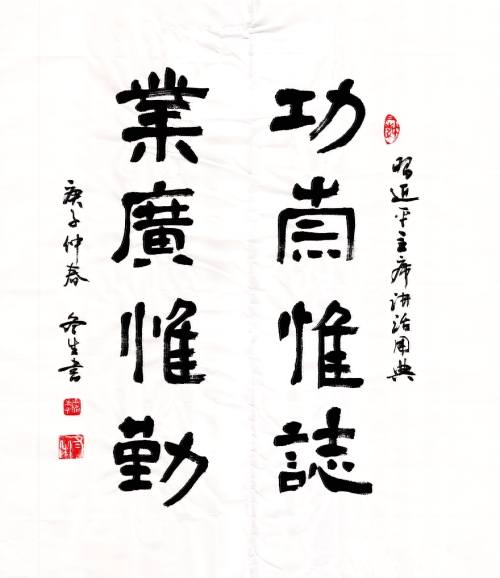 習近平主席讲话用典
功崇惟誌
業廣惟勤
庚子仲春 冬生書